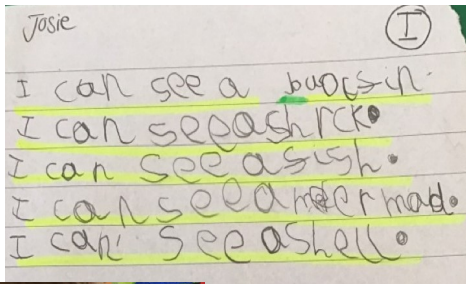 Josie
I
I can see a
I can seeashrck.
I can see asish.
I can seea mdermad.
I can see ashell.